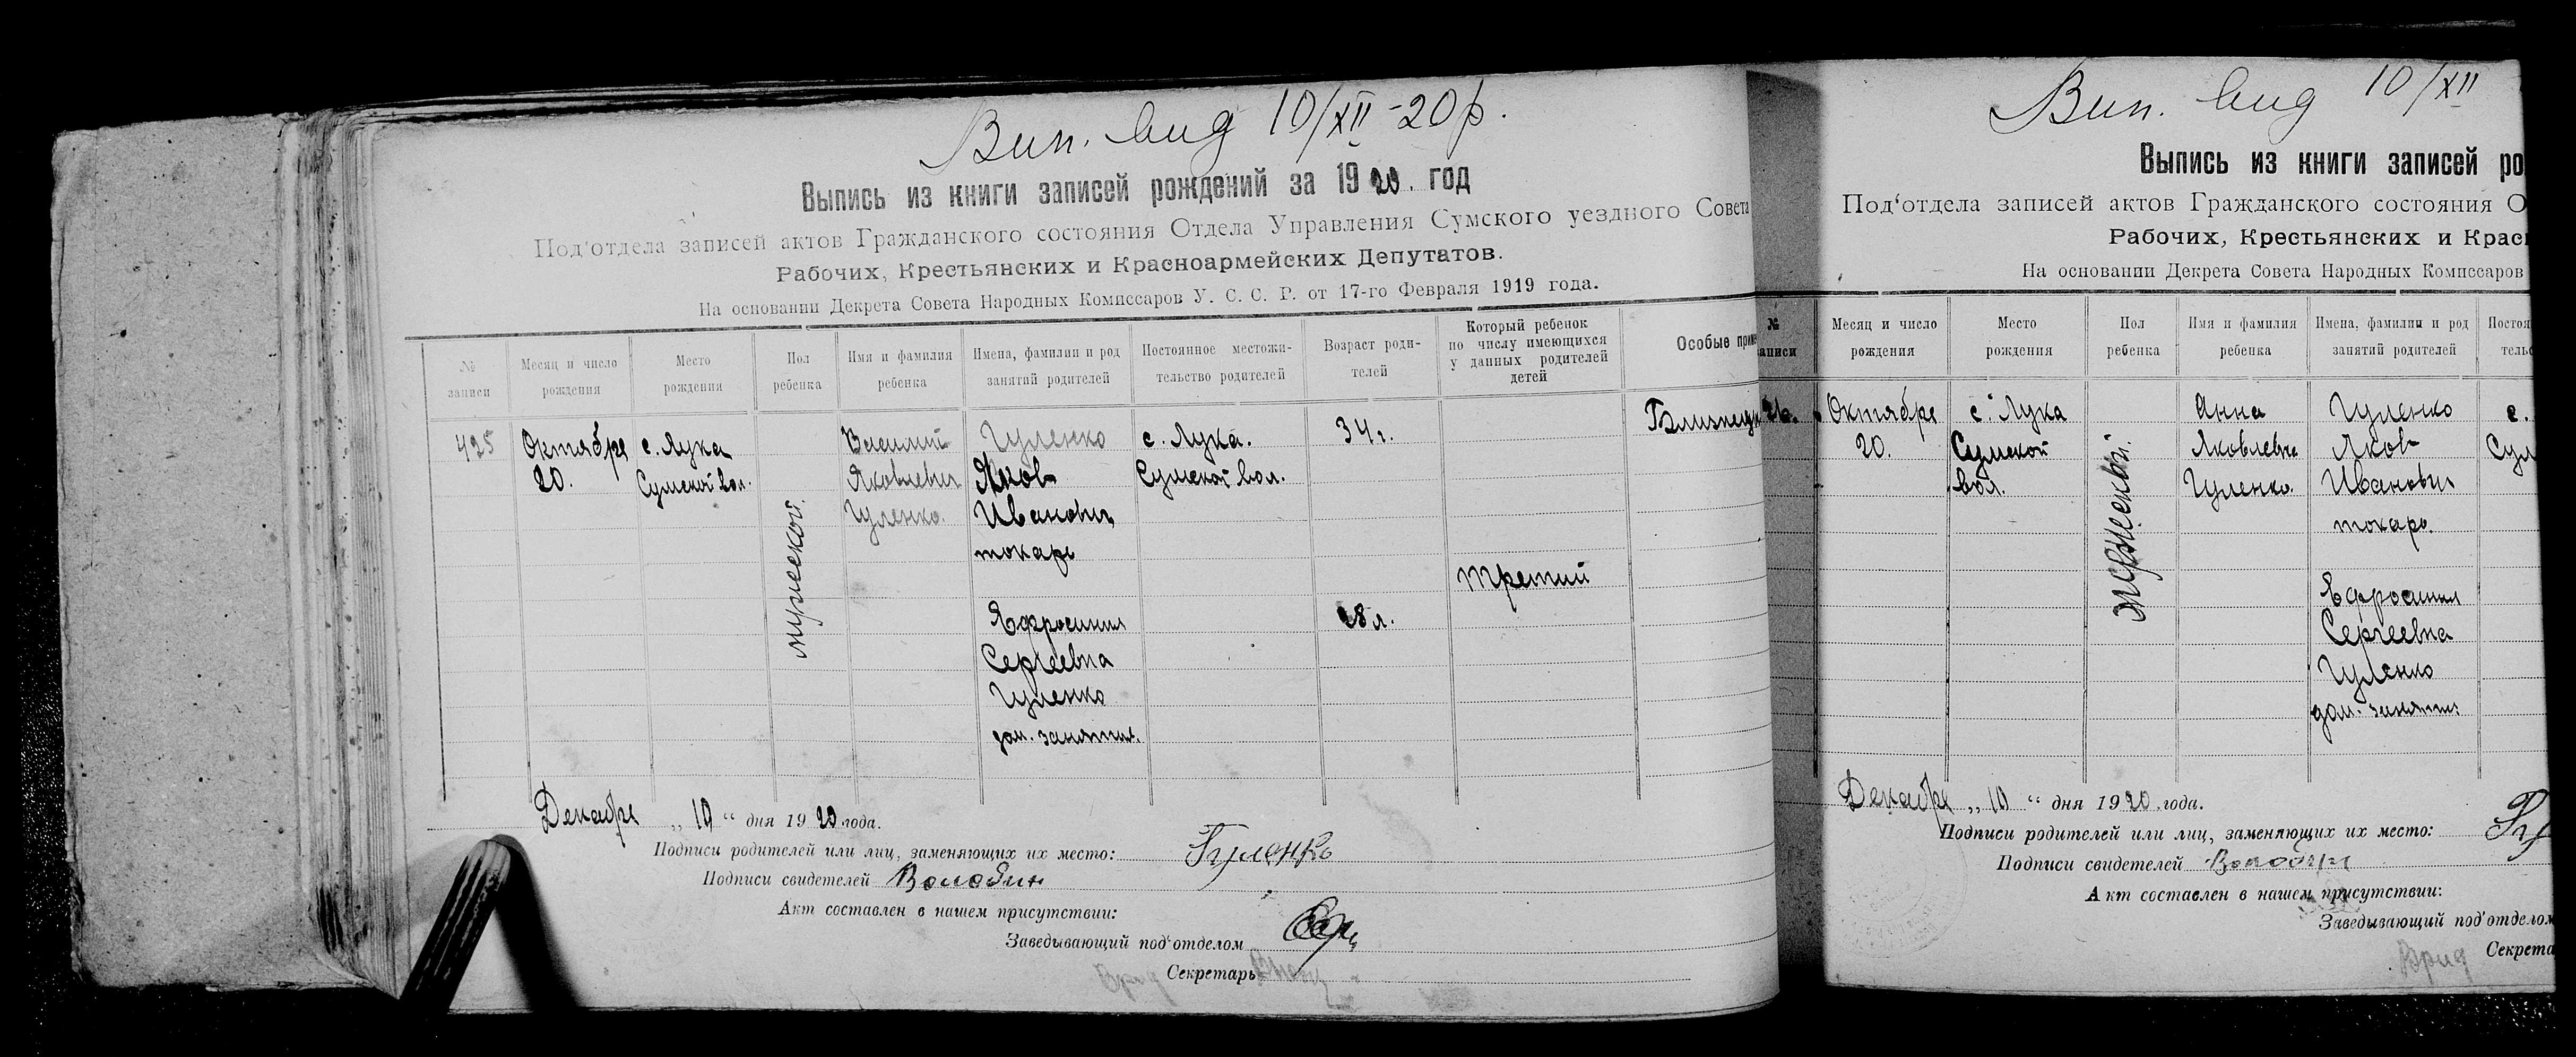 Вип. вид 10/XII-20 р.
Выпись из книги записей рождений за 1920. год
Под'отдела записей актов Гражданского состояния Отдела Управления Сумского уездного Совета
Рабочих, Крестьянских и Красноармейских Депутатов.
На основании Декрета Совета Народных Комиссаров У. С. С. Р. от 17-го Февраля 1919 года.
№ записи
Месяц и число рождения
Место рождения
Пол ребенка
Имя и фамилия ребенка
Имена, фамилии и род занятий родителей
Постоянное местожи-
тельство родителей
Возраст роди-
телей
Который ребенок
по числу имеющихся
у данных родителей
детей
Особые прим
425
Октября
20.
с. Лука
Сумской вол.
мужеской.
Василий
Яковлевич
Гуленко.
Гуленко
Яков
Иванович
токарь
Ефросиния
Сергеевна
Гуленко
дом. занятия.
с. Лука.
Сумской вол.
34 г.
28 л.
третий
Близнецы
Декабря „10“ дня 1920 года.
Подписи родителей или лиц, заменяющих их место: Гуленко
Подписи свидетелей
Акт составлен в нашем присутствии:
Заведывающий под'отделом
Врид Секретарь
Вип. вид 10/XII
Выпись из книги записей ро
Под'отдела записей актов Гражданского состояния О
Рабочих, Крестьянских и Красн
На основании Декрета Совета Народных Комиссаров
№
записи
Месяц и число
рождения
Место
рождения
Пол
ребенка
Имя и фамилия
ребенка
Имена, фамилии и род
занятий родителей
Постоя
тельс
Октября
20.
с. Лука
Сумской
вол.
женской.
Анна
Яковлевна
Гуленко.
Гуленко
Яков
Иванович
токарь.
Ефросиния
Сергеевна
Гуленко
дом. занятия
с.
Сум
Декабря „10“ дня 1920 года.
Подписи родителей или лиц, заменяющих их место: Гу
Подписи свидетелей
Акт составлен в нашем присутствии:
Заведывающий под'отделом
Врид Секрета